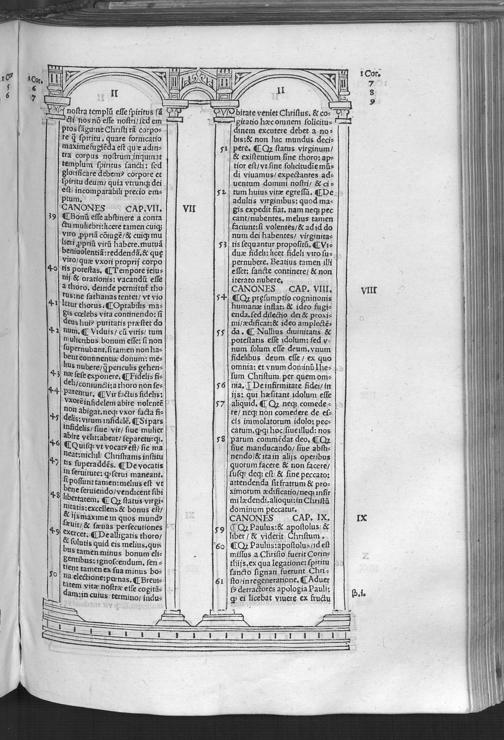 1 Cor.
5
6
1 Cor.
6
7
II
nostra templū esse spiritus sā
cti: nos nō esse nostri: sed em
ptos sāguine Christi rū corpo
re q̄ spiritu. quare fornicatio
maxime fugiēda est quæ adin
tra corpus nostrum inquinat
templum spiritus sancti: sed
glorificare debem9 corpore et
spiritu deum: quia vtrunq; dei
est: incomparabili precio em
ptum.
CANONES CAP. VII. VII
39 ¶Bonū esse abstinere a conta
ctu muliebri: licere tamen cuiq;
viro ppriā cōiuge/ & cuiq; mu
lieri ppriū virū habere. mutuā
beniuolentiā: reddendā. & que
viro/ quæ vxori proprij corpo
40 ris potestas. ¶Tempore ieiu
nij & orationis: vacandū esse
a thoro. deinde permittit esto
rus: ne sathanas tentet/ et vio
41 letur thorus. ¶Optabilis ma
gis cœlebs vita continendo: si
deus huic puritatis præstet do
42 num. ¶Viduis/ cū viris/ tum
mulieribus bonum esse: si non
supernubant. si tamen non ha
bent continentiæ donum: me
lius nubere/ q̄ periculis gehen
43 næ sese exponere. ¶Fidelis fi
deli/ coniuncti: a thoro non se
44 parentur. ¶Vir factus fidelis:
vxorē infidelem abire nolentē
non abigat. neq; vxor facta fi-
45 delis: virum infidelē. ¶Si pars
infidelis/ siue vir/ siue mulier
abire velit: abeat/ separeturq;.
46 ¶Quisq; vt vocat9 est/ sic ma
neat: nichil Christianis institu
47 tis superaddēs. ¶De vocatis
in seruitute: q̄ serui maneant.
si possunt tamen: melius est vt
bene seruiendo/ vendicent sibi
48 libertatem. ¶Qȝ status virgi-
nitatis: excellens & bonus est/
& ijs maxime in quos mund9
sæuit/ & sæuas persecutiones
49 exercet. ¶De alligatis thoro/
& solutis quid eis melius. qui-
bus tamen minus bonum eli-
gentibus: ignoscendum. sen-
tient tamen ex sua minus bo
50 na electione: pœnas. ¶Breui
tatem vitæ nostræ esse cogitā
dam: in cuius termino/ indu-
II
1 Cor.
7
8
9
bitate veniet Christus. & co-
gitatio hæc omnem solicitu-
dinem excutere debet a no-
bis: & non huc mundus deci-
51 pere. ¶Qȝ status virginum/
& existentium sine thoro: ap-
tior est/ vt sine solicitudine mū
di viuamus/ expectantes ad-
uentum domini nostri/ & ci
52 tum huius vitæ egressū. ¶De
adultis virginibus: quod ma-
gis expedit fiat. nam neq; pec
cant/ nubentes. melius tamen
faciunt: si volentes/ & ad id do
num dei habentes/ virginita-
53 tis sequantur propositū. ¶Vi-
duæ fideli: licet fideli viro su-
pernubere. Beatius tamen illi
esset: sancte continere/ & non
iterato nubere.
CANONES CAP. VIII. VIII
54 ¶Qȝ præsumptio cognitionis
humanæ inflat: & ideo fugi-
enda. sed dilectio dei & proxi
mi/ ædificat: & ideo amplectē-
55 da. ¶Nullius diuinitatis &
potestatis esse idolum: sed v-
num solum esse deum, vnum
fidelibus deum esse/ ex quo
omnia: et vnum dominū Ihe-
sum Christum per quem om-
56 nia. ¶De infirmitate fidei/ in
ijs: qui hæsitant idolum esse
57 aliquid. ¶Qȝ neq; comede-
re/ neq; non comedere de es-
cis immolatorum idolo: pec-
catum. qȝq; hoc/ siue illud: nos
58 parum commēdat deo. ¶Qȝ
siue manducando/ siue absti-
nendo/ & ita in alijs operibus
quorum facere & non facere/
susq; deq; est: & sine peccato:
attendenda sit fratrum & pro-
ximorum ædificatio/ neq; infir
mi lædendi. alioqui: in Christū
dominum peccatur.
CANONES CAP. IX. IX
59 ¶Qȝ Paulus: & apostolus &
liber/ & viderit Christum.
60 ¶Qȝ Paulus: apostolus/ id est
missus a Christo fuerit Corin-
thijs. ex qua legatione: spiritu
sancto signati fuerunt Chri-
61 sto/ in regeneratione. ¶Aduer
sus detractores apologia Pauli:
q̄ ei licebat viuere ex fructu
β.i.